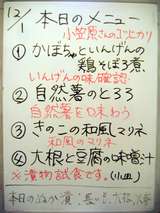 12/1 本日のメニュー
小笠原さんのコシヒカリ
① かぼちゃといんげんの
鶏そぼろ煮
いんげんの味確認
② 自然薯のとろろ
自然薯を味わう
③ きのこの和風マリネ
和風のマリネ
④ 大根と豆腐の味噌汁
※漬物試食です。(小皿)
本日のぬか漬：長いも、大根、人参